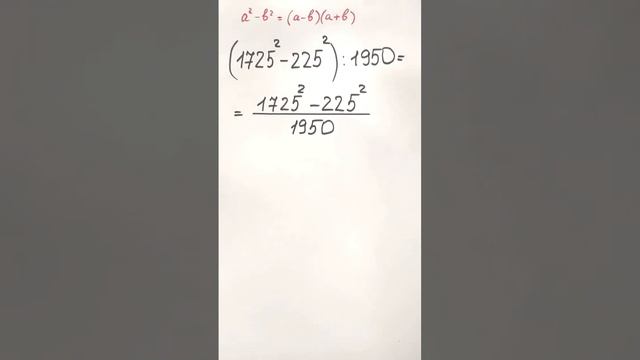 a² - b² = (a-b)(a+b)
(1725² - 225²) : 1950 =
= 1725² - 225²
1950